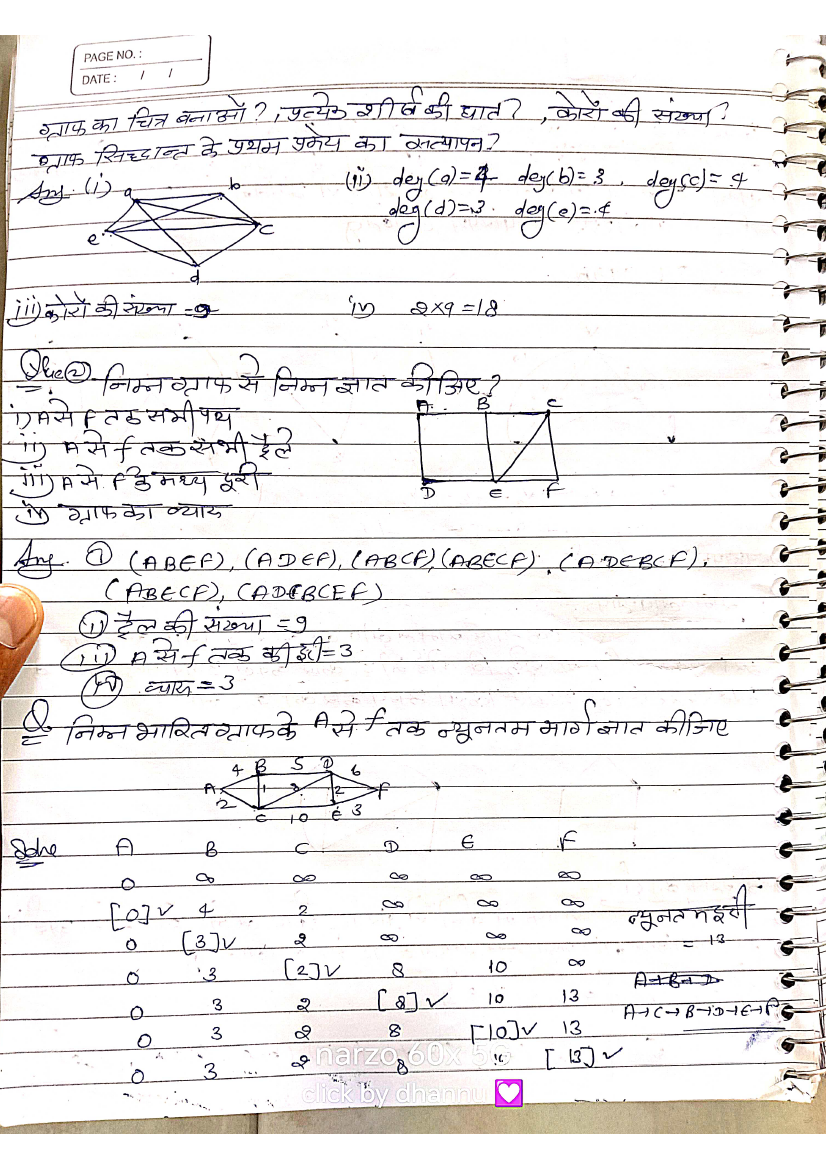 PAGE NO. :
DATE : / /
ग्राफ का चित्र बनाओ ?, प्रत्येक शीर्ष की घात ? , कोरों की संख्या ?
ग्राफ सिद्धान्त के प्रथम प्रमेय का सत्यापन ?
Ans. (i) (ii) deg(a)=4 deg(b)=3 . deg(c)=4
deg(d)=3. deg(e)=4
a b
e c
d
iii) कोरों की संख्या =9 iv) 2×9=18
Que② निम्न ग्राफ से निम्न ज्ञात कीजिए ?
i) A से F तक सभी पथ
ii) A से f तक सभी ट्रैले
iii) A से F के मध्य दूरी
iv) ग्राफ का व्यास
A B C
D E F
Ans. ① (ABEF), (ADEF), (ABCF), (ABECF), (ADEBCF),
(ABECF), (ADEBCEF)
ii) ट्रैल की संख्या =9
iii) A से f तक की दूरी=3
iv) व्यास =3
Q निम्न भारित ग्राफ के A से f तक न्यूनतम मार्ग ज्ञात कीजिए
4 B 5 D 6
A 1 2 F
2 C 10 E 3
Solve A B C D E F
0 ∞ ∞ ∞ ∞ ∞
[0]✓ 4 2 ∞ ∞ ∞
0 [3]✓ 2 ∞ ∞ ∞
0 3 [2]✓ 8 10 ∞
0 3 2 [8]✓ 10 13
0 3 2 8 [10]✓ 13
0 3 2 8 [13]✓
न्यूनतम दूरी
= 13
A→C→B→D→E→F
narzo 60x 5G
click by dhannu